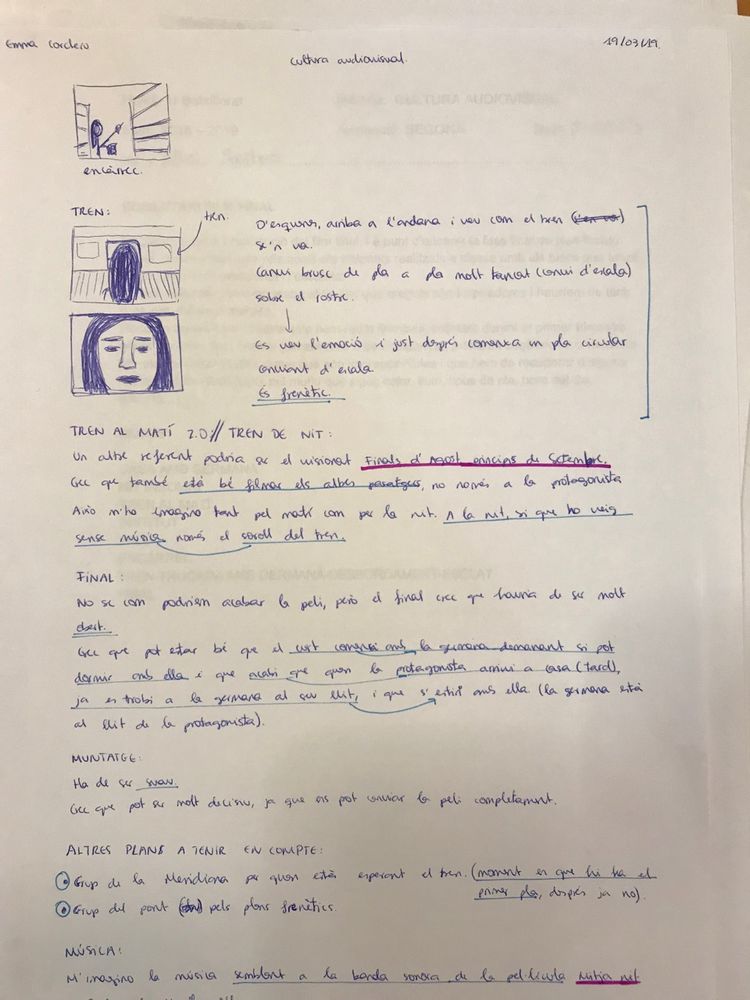 Emma Cordero
19/03/19.
Cultura audiovisual.
encàrrec.
TREN:
tren.
D'esquenes, arriba a l'andana i veu com el tren
se'n va.
Canvi brusc de pla a pla molt tancat (canvi d'escala)
sobre el rostre.
Es veu l'emoció i just després comença un pla circular
canviant d'escala
És frenètic.
TREN AL MATÍ 2.0// TREN DE NIT:
Un altre referent podria ser el visionat Finals d'Agost, principis de Setembre.
Crec que també està bé filmar els altres passatgers, no només a la protagonista
Això m'ho imagino tant pel matí com per la nit. A la nit, si que ho veig
sense música, només el soroll del tren.
FINAL:
No se com podríem acabar la peli, però el final crec que hauria de ser molt
obert.
Crec que pot estar bé que el curt comenci amb la germana demanant si pot
dormir amb ella i que acabi que quan la protagonista arrivi a casa (tard),
ja es trobi a la germana al seu llit, i que s'estiri amb ella. (la germana està
al llit de la protagonista).
MUNTATGE:
Ha de ser suau.
Crec que pot ser molt decisiu, ja que ens pot canviar la peli completament.
ALTRES PLANS A TENIR EN COMPTE:
Grup de la Meridiana per quan està esperant el tren. (moment en que hi ha el
primer pla, després ja no).
Grup del pont pels plans frenètics.
MÚSICA:
M'imagino la música semblant a la banda sonora de la pel·lícula Mitja nit